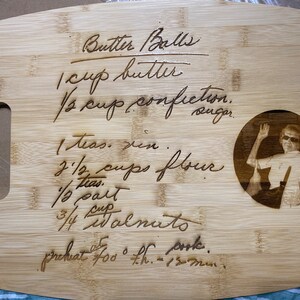 Butter Balls
1 cup butter
1/2 cup confection.
sugar
1 teas. vin.
2 1/2 cups flour
1/2 teas. salt
3/4 cup walnuts
preheat at 400° fh. - cook. 12 min.